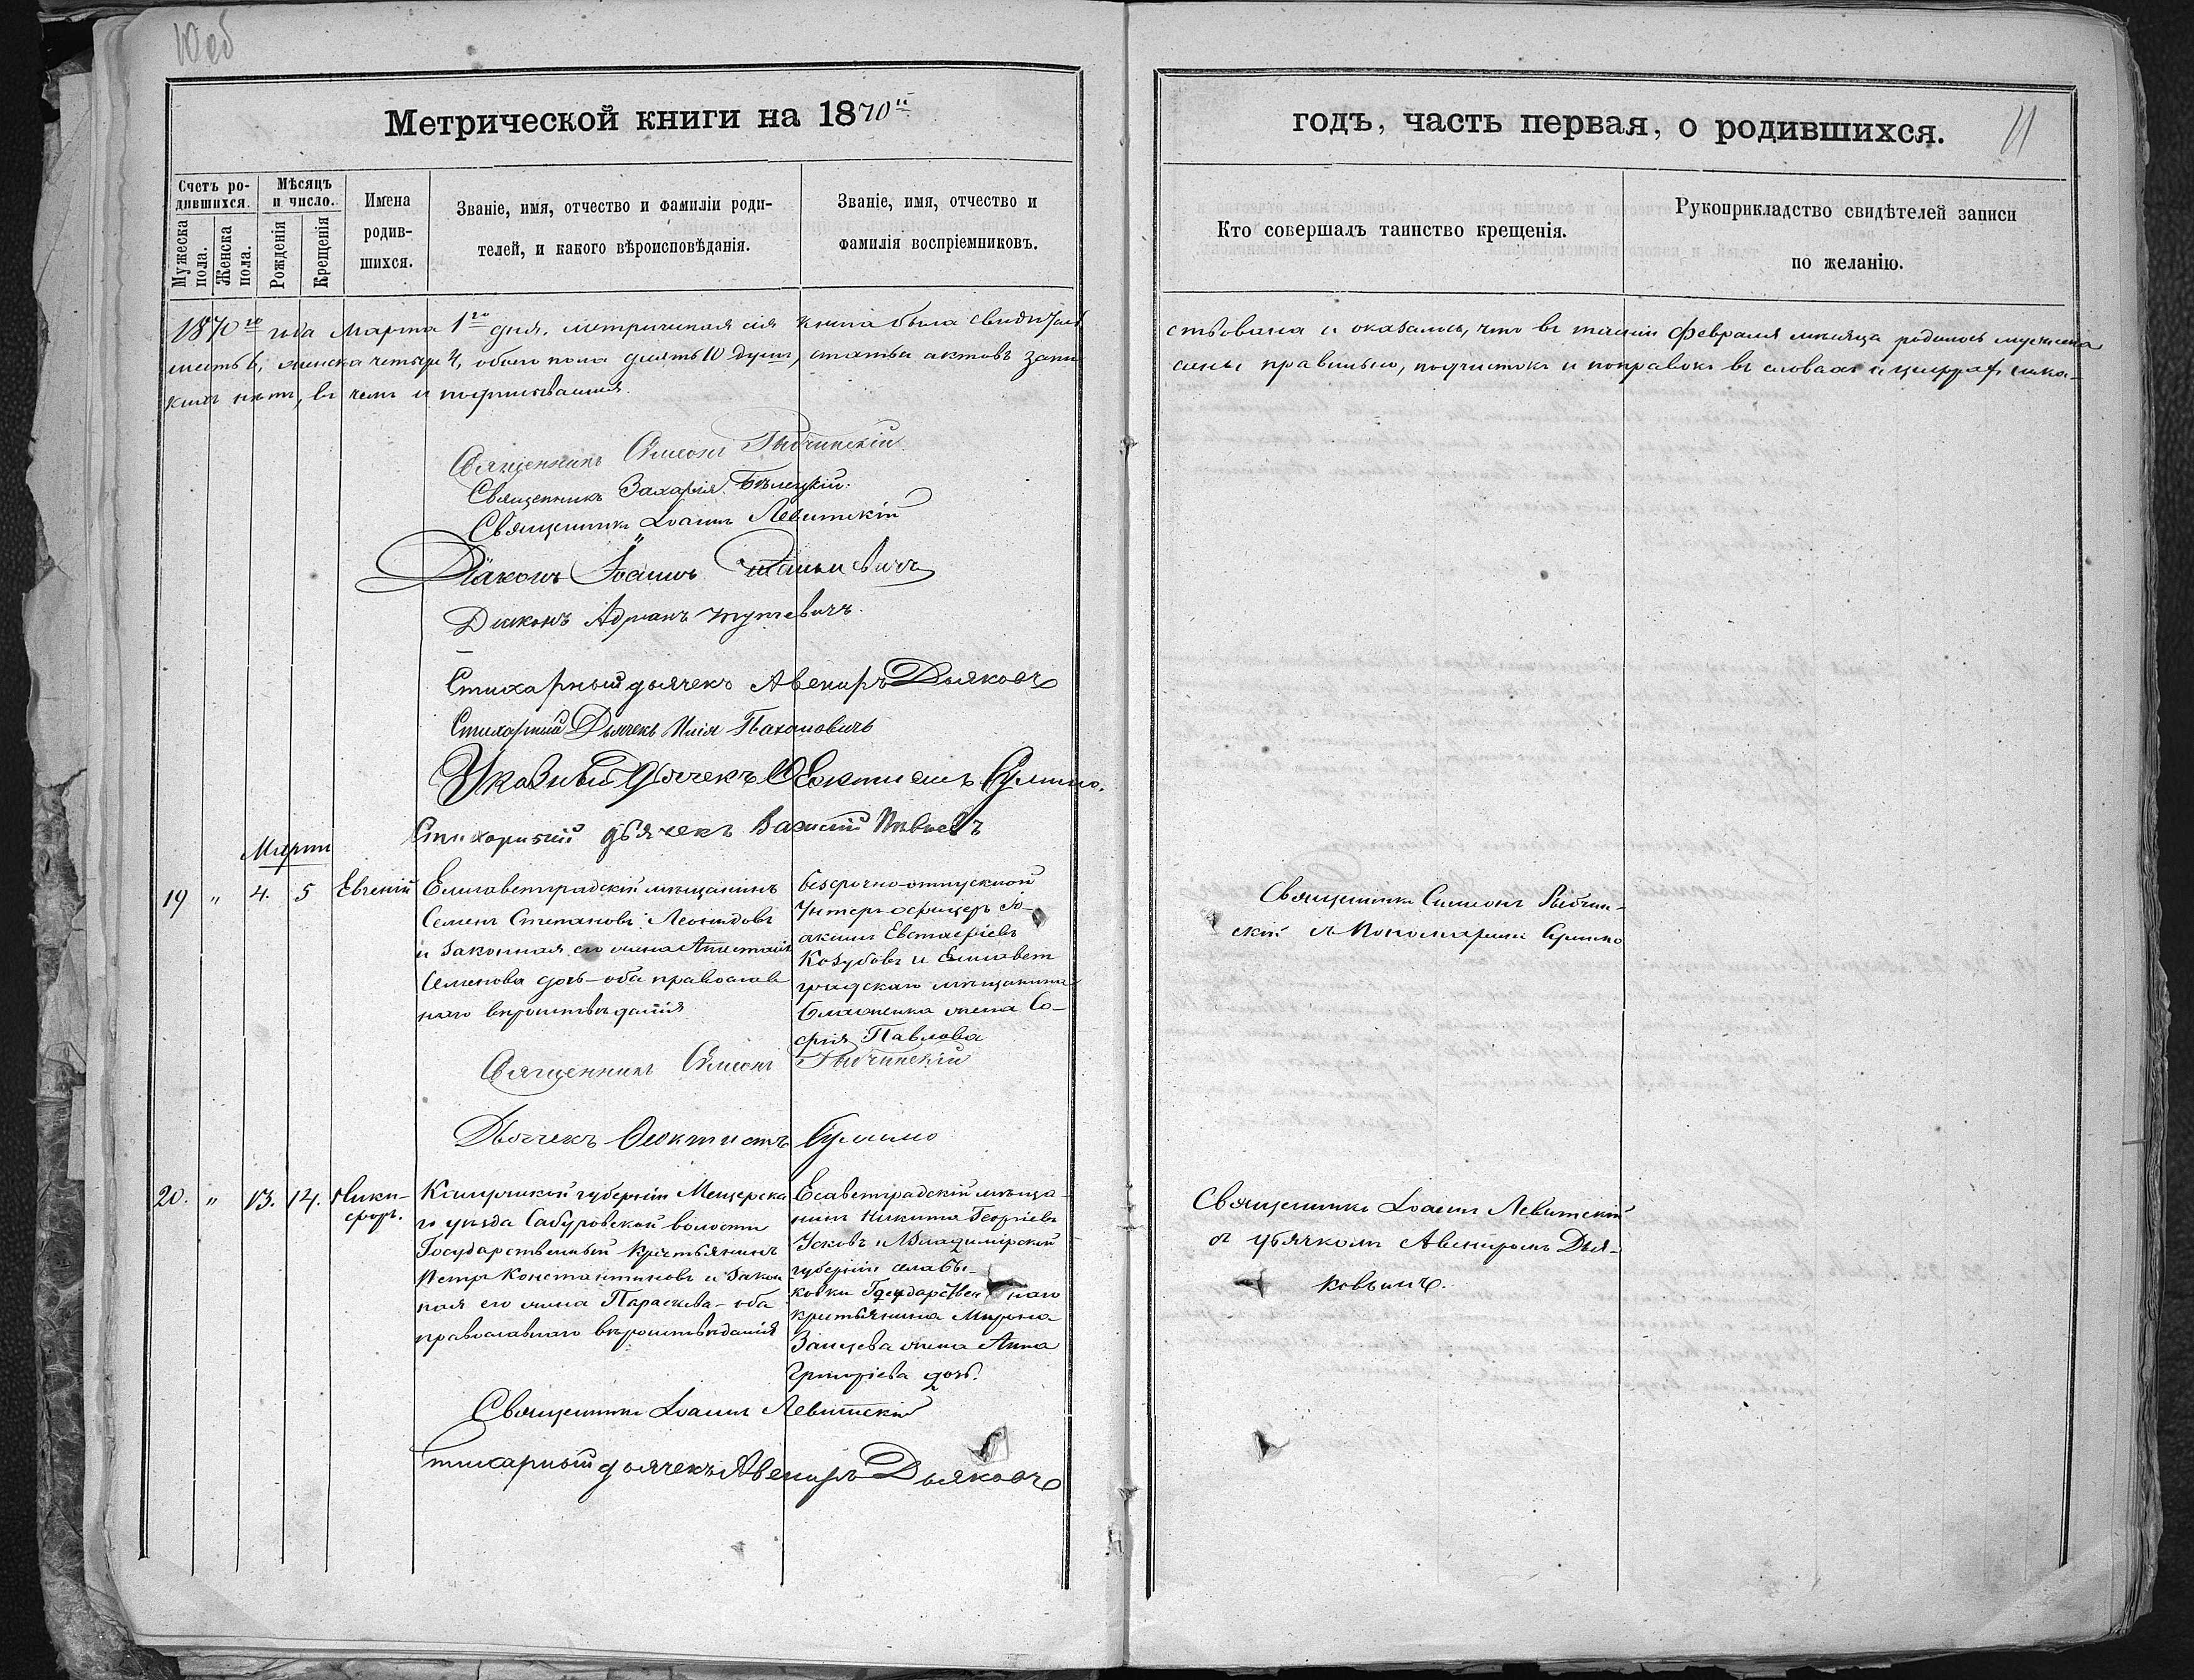 10 об
Метрической книги на 1870й
годъ, часть первая, о родившихся.
11
Счетъ ро-
дившихся.
Мужеска пола.
Женска пола.
Мѣсяцъ
и число.
Рожденія
Крещенія
Имена
родив-
шихся.
Званіе, имя, отчество и фамиліи роди-
телей, и какого вѣроисповѣданія.
Званіе, имя, отчество и
фамилія воспріемниковъ.
Кто совершалъ таинство крещенія.
Рукоприкладство свидѣтелей записи
по желанію.
1870го года Марта 1го дня, метрическая сія книга была свидѣтель
ствована и оказалось, что въ теченіи Февраля мѣсяца родилось мужеска
шесть 6, женска четыре 4, обоего пола десять 10 душъ, статьи актовъ запи
саны правильно, подчистокъ и поправокъ въ словахъ и цыфрахъ ника-
кихъ нѣтъ, въ чемъ и подписываемся
Священникъ Симеонъ Рыбчинскій
Священникъ Захарія Бѣлецкій.
Священникъ Іоаннъ Левитскій
Діаконъ Іоаннъ
Діаконъ Адріанъ
Стихарный дьячекъ Авениръ Дьяковъ
Стихарный Дьячекъ Илія Пахановичъ
Указный Дьячекъ Ѳеоктистъ Сулимо.
Стихарный дьячекъ Василій
Мартъ
19 " 4. 5 Евгеній
Елисаветградскій мѣщанинъ
Семенъ Стефановъ Леонидовъ
и законная его жена Анастасія
Семенова дочь – оба православ
наго вѣроисповѣданія
безсрочно-отпускной
Унтеръ-офицеръ Іо-
акимъ Евстафіевъ
Козубовъ и Елисавет
градскаго мѣщанина
Блаженка жена Со-
фія Павлова
Священникъ Симеонъ Рыбчин-
скій съ Пономаремъ Сулимо
Священникъ Симеонъ Рыбчинскій
Дьячекъ Ѳеоктистъ Сулимо
20. " 13. 14. Ники-
форъ.
губерніи Мещерска
го уѣзда Сабуровской волости
Государственный Крестьянинъ
Петръ Константиновъ и закон
ная его жена Параскева – оба
православнаго вѣроисповѣданія
Есаветградскій мѣща-
нинъ Никита Георгіевъ
Усковъ и Владимірской
губерніи
ковки Государственнаго
крестьянина Мирона
Зайцева жена Анна
Григоріева дочь.
Священникъ Іоаннъ Левитскій
съ дьячкомъ Авениромъ Дья-
ковымъ.
Священникъ Іоаннъ Левитскій
Стихарный дьячекъ Авениръ Дьяковъ